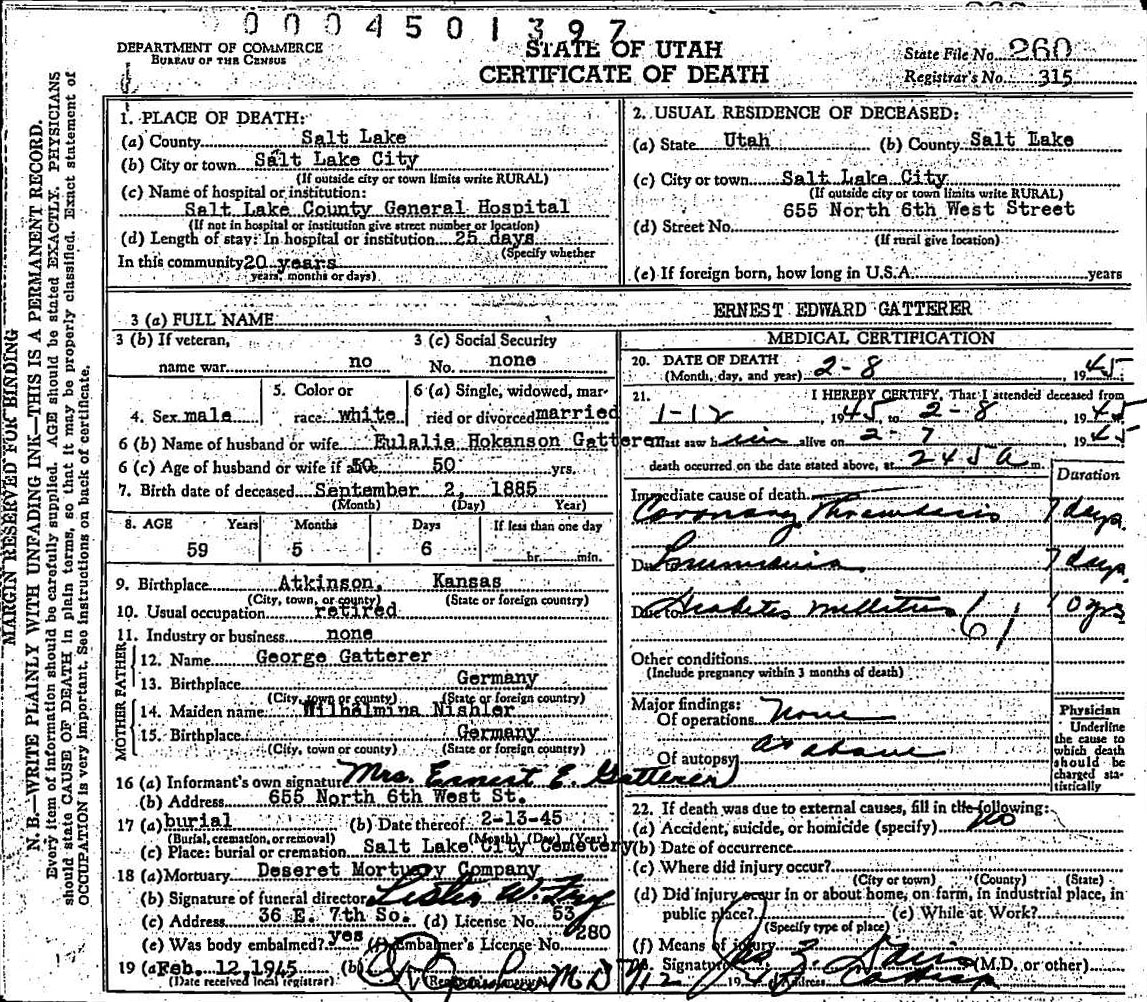 0004501397
DEPARTMENT OF COMMERCE
BUREAU OF THE CENSUS
STATE OF UTAH
CERTIFICATE OF DEATH
State File No. 260
Registrar's No. 315
MARGIN RESERVED FOR BINDING
N. B.—WRITE PLAINLY WITH UNFADING INK—THIS IS A PERMANENT RECORD.
Every item of information should be carefully supplied. AGE should be stated EXACTLY. PHYSICIANS
should state CAUSE OF DEATH in plain terms, so that it may be properly classified. Exact statement of
OCCUPATION is very important. See instructions on back of certificate.
1. PLACE OF DEATH:
(a) County Salt Lake
(b) City or town Salt Lake City
(If outside city or town limits write RURAL)
(c) Name of hospital or institution:
Salt Lake County General Hospital
(If not in hospital or institution give street number or location)
(d) Length of stay: In hospital or institution 25 days
(Specify whether
In this community 20 years
years, months or days)
2. USUAL RESIDENCE OF DECEASED:
(a) State Utah (b) County Salt Lake
(c) City or town Salt Lake City
(If outside city or town limits write RURAL)
655 North 6th West Street
(d) Street No.
(If rural give location)
(e) If foreign born, how long in U.S.A. years
3 (a) FULL NAME ERNEST EDWARD GATTERER
3 (b) If veteran, name war no
3 (c) Social Security No. none
4. Sex male
5. Color or race white
6 (a) Single, widowed, married or divorced married
6 (b) Name of husband or wife Eulalie Hokanson Gatterer
6 (c) Age of husband or wife if alive 50 50 yrs.
7. Birth date of deceased September 2, 1885
(Month) (Day) (Year)
8. AGE Years Months Days If less than one day
59 5 6 hr. min.
9. Birthplace Atkinson, Kansas
(City, town, or county) (State or foreign country)
10. Usual occupation retired
11. Industry or business none
FATHER
12. Name George Gatterer
13. Birthplace Germany
(City, town or county) (State or foreign country)
MOTHER
14. Maiden name Wilhelmina Nishler
15. Birthplace Germany
(City, town or county) (State or foreign country)
16 (a) Informant's own signature Mrs. Ernest E. Gatterer
(b) Address 655 North 6th West St.
17 (a) burial (b) Date thereof 2-13-45
(Burial, cremation, or removal) (Month) (Day) (Year)
(c) Place: burial or cremation Salt Lake City Cemetery
18 (a) Mortuary Deseret Mortuary Company
(b) Signature of funeral director Lester W. Fry
(c) Address 36 E. 7th So. (d) License No. 53
(e) Was body embalmed? yes (f) Embalmer's License No. 280
19 (a) Feb. 12, 1945 (b) M D
(Date received local registrar)
MEDICAL CERTIFICATION
20. DATE OF DEATH
(Month, day, and year) 2-8, 1945
21. I HEREBY CERTIFY, That I attended deceased from
1-12, 1945 to 2-8, 1945
I last saw him alive on 2-7, 1945
death occurred on the date stated above, at 245 a m.
Duration
Immediate cause of death
Coronary Thrombosis 7 days.
Due to Pneumonia 7 days.
Due to Diabetes mellitus 10 yrs
61
Other conditions
(Include pregnancy within 3 months of death)
Major findings:
Of operations None
Of autopsy as above
Physician
Underline
the cause to
which death
should be
charged sta-
tistically
22. If death was due to external causes, fill in the following:
(a) Accident, suicide, or homicide (specify) no
(b) Date of occurrence
(c) Where did injury occur?
(City or town) (County) (State)
(d) Did injury occur in or about home, on farm, in industrial place, in
public place? (e) While at Work?
(Specify type of place)
(f) Means of injury
Signature Davis (M.D. or other)
2/12 19 Address